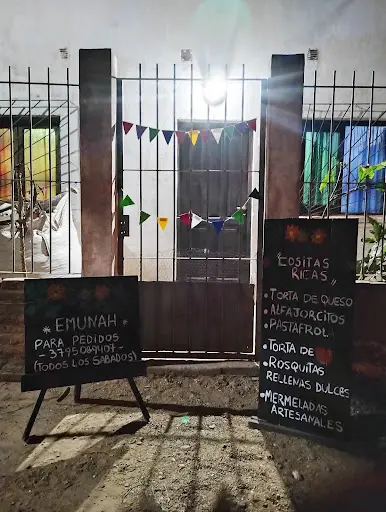 * EMUNAH *
PARA PEDIDOS
- 3795089407 -
(TODOS LOS SABADOS)
COSITAS
RICAS
• TORTA DE QUESO
• ALFAJORCITOS
• PASTAFROL
• TORTA DE
• ROSQUITAS
RELLENAS DULCES
• MERMELADAS
ARTESANALES